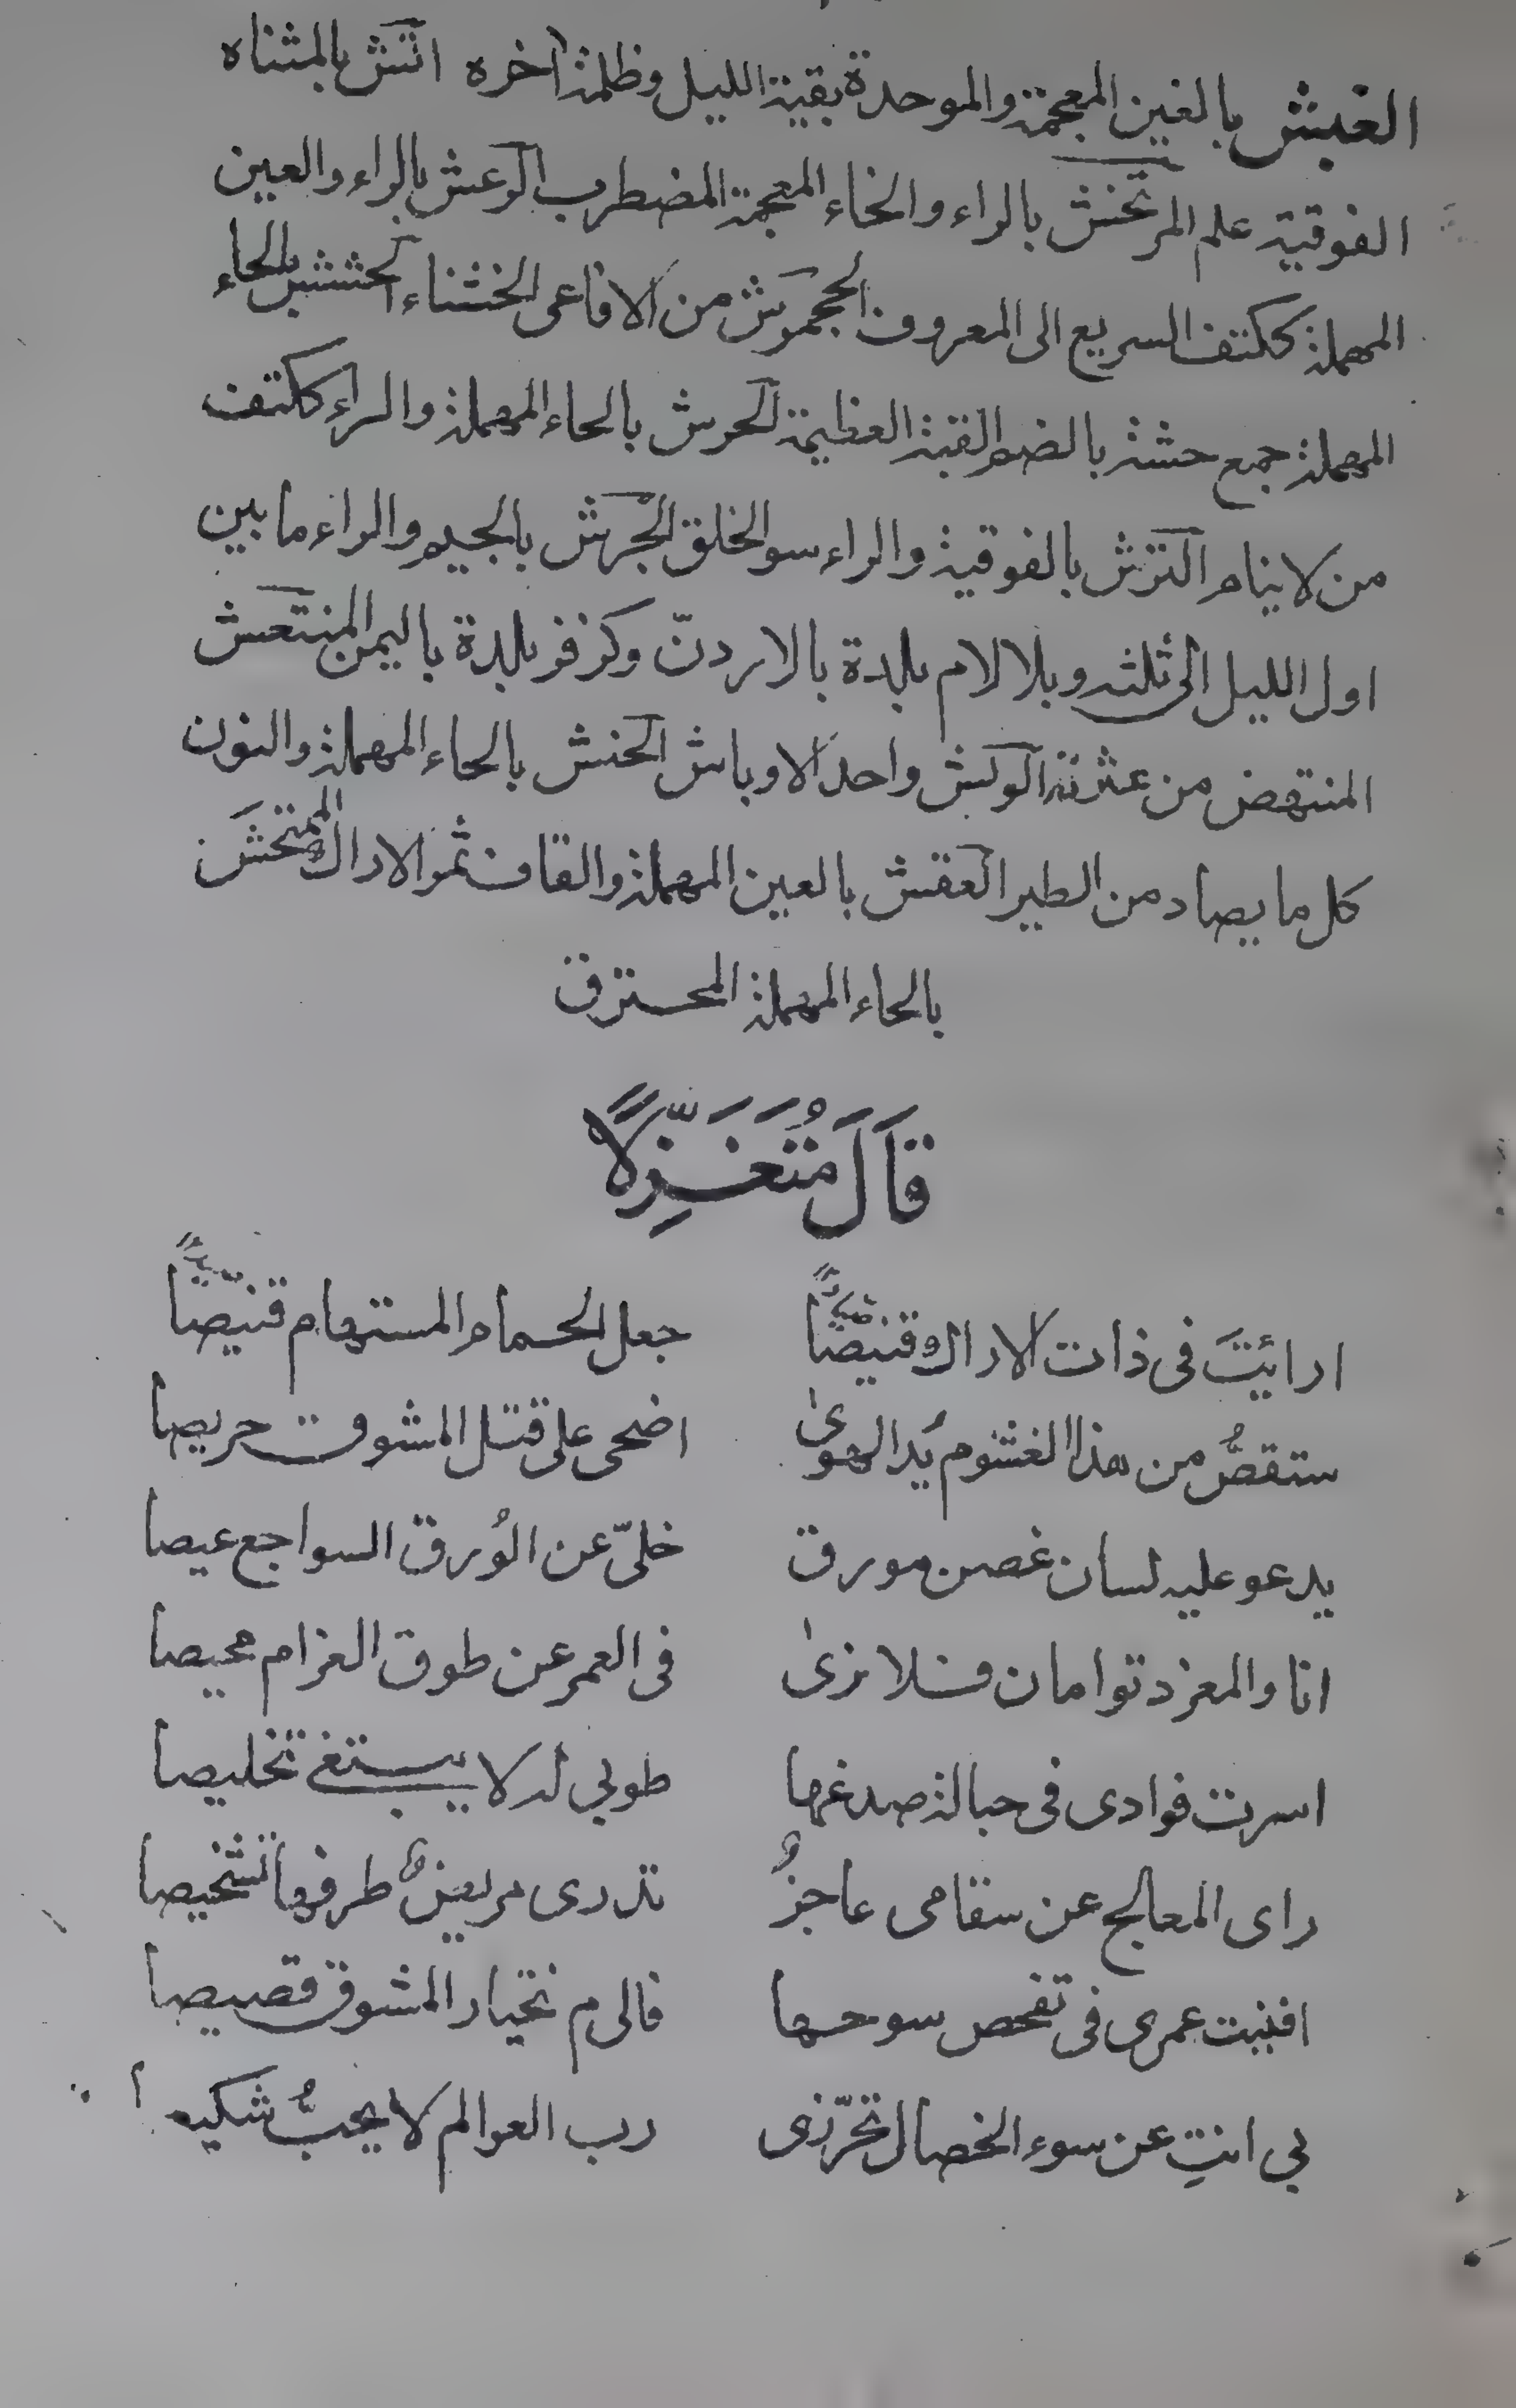 الغبش بالغين المعجمة والموحدة بقية الليل وظلمة آخره اتش بالمثناه
الفوقية علم المرتخش بالراء والخاء المعجمة المضطرب الرعش بالراء والعين
المهملة ككتف السريع الى المعروف الجحموش من الافاعى الخشناء الحشش بالحاء
المهملة جمع حشة بالضم القبة العظيمة الحرش بالحاء المهملة والراء ككتف
من لا ينام الترش بالفوقية والراء سو الخلق الجرش بالجيم والراء ما بين
اول الليل الى ثلثه وبلا لام بلدة بالاردنّ وكزفر بلدة باليمن المنتعش
المنتهض من عثرته الوبش واحد الاوباش الحنش بالحاء المهملة والنون
كل ما يصاد من الطير العقش بالعين المهملة والقاف ثمر الاراك الممتحش
بالحاء المهملة المحترق
قَالَ مُتَغَزِّلًا
ارائيتَ فى ذات الاراك قنيصًا جعل الحمام المستهام قنيصًا
ستقصُّ من هذا الغشوم يُد الهوىٰ اضحى على قتل المشوق حريصا
يدعو عليه لسان غصن مورق خلىّ عن الوُرق السواجع عيصا
انا والمغرد توامان فلا نرىٰ فى العمر عن طوق الغرام محيصا
اسرت فوادى فى حبالة صدغها طوبى له لا يبتغى تخليصا
راى المعالج عن سقامى عاجزٌ تدرى مريض طرفها تشخيصا
افنيت عمرى فى تفحص سوحها فالى م تختار المشوق قصيصا
بى انتِ عن سوء الخصال تحرّزى رب العوالم لا يحبُّ شكيه